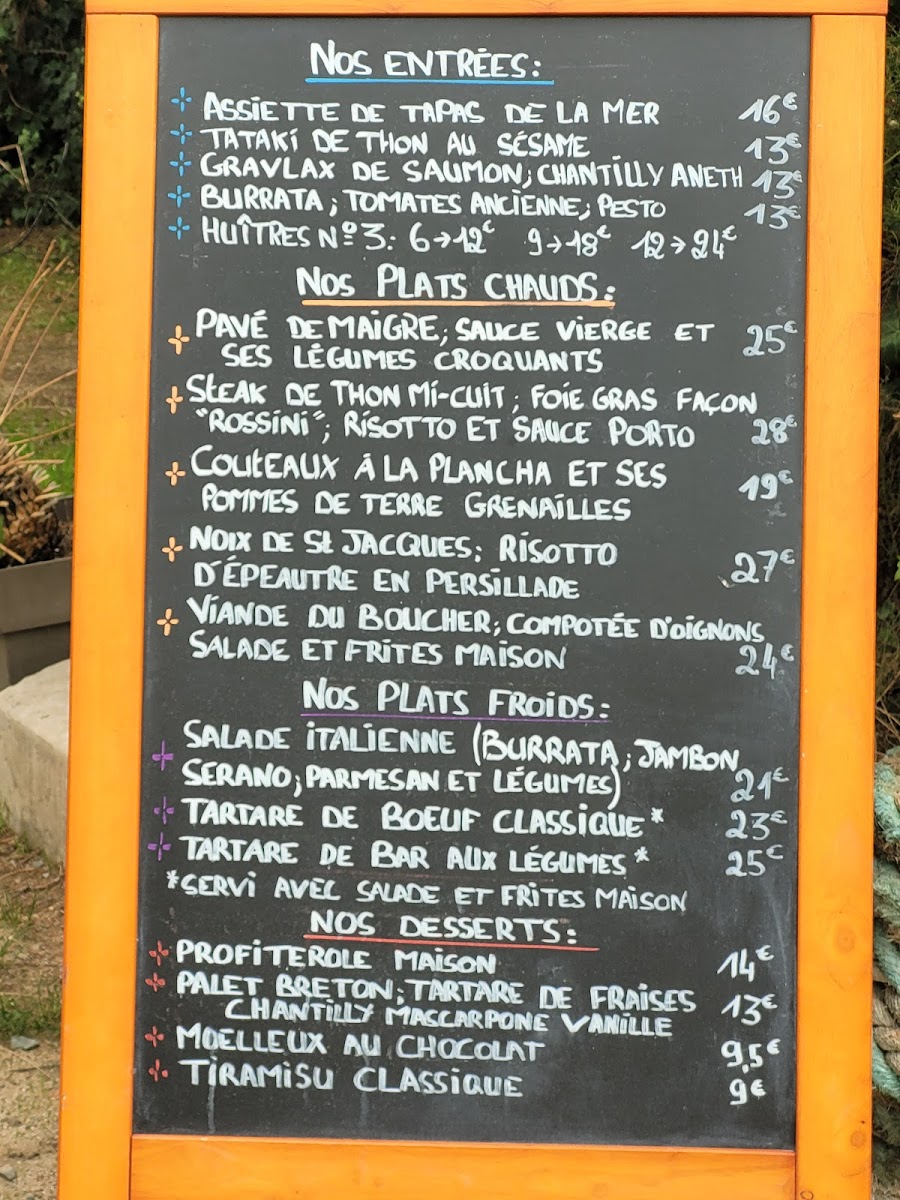 NOS ENTRÉES:
ASSIETTE DE TAPAS DE LA MER 16€
TATAKI DE THON AU SÉSAME 13€
GRAVLAX DE SAUMON; CHANTILLY ANETH 13€
BURRATA; TOMATES ANCIENNE; PESTO 13€
HUÎTRES Nº3: 6→12€ 9→18€ 12→24€
NOS PLATS CHAUDS:
PAVÉ DE MAIGRE; SAUCE VIERGE ET
SES LÉGUMES CROQUANTS 25€
STEAK DE THON MI-CUIT; FOIE GRAS FAÇON
"ROSSINI"; RISOTTO ET SAUCE PORTO 28€
COUTEAUX À LA PLANCHA ET SES
POMMES DE TERRE GRENAILLES 19€
NOIX DE St JACQUES; RISOTTO
D'ÉPEAUTRE EN PERSILLADE 27€
VIANDE DU BOUCHER; COMPOTÉE D'OIGNONS
SALADE ET FRITES MAISON 24€
NOS PLATS FROIDS:
SALADE ITALIENNE (BURRATA; JAMBON
SERANO; PARMESAN ET LÉGUMES) 21€
TARTARE DE BOEUF CLASSIQUE* 23€
TARTARE DE BAR AUX LÉGUMES* 25€
*SERVI AVEC SALADE ET FRITES MAISON
NOS DESSERTS:
PROFITEROLE MAISON 14€
PALET BRETON; TARTARE DE FRAISES
CHANTILLY MASCARPONE VANILLE 13€
MOELLEUX AU CHOCOLAT 9,5€
TIRAMISU CLASSIQUE 9€